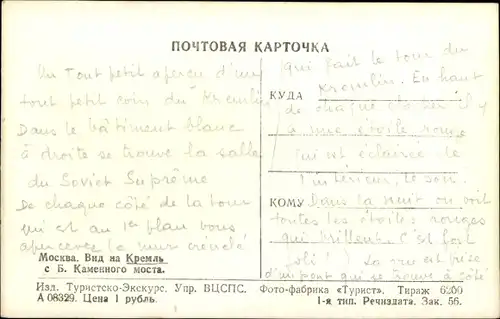 ПОЧТОВАЯ КАРТОЧКА
Un Tout petit aperçu d'un
tout petit coin du Kremlin
Dans le bâtiment blanc
à droite se trouve la salle
du Soviet Suprême
De chaque côté de la tour
qui est au 1er plan vous
apercevez le mur crénelé
Москва. Вид на Кремль
с Б. Каменного моста.
qui fait le tour du
КУДА Kremlin. En haut
de chaque il y
a une étoile rouge
qui est éclairée de
l'intérieur, le soir.
КОМУ Dans la nuit on voit
toutes les étoiles rouges
qui brillent. C'est fort
joli! La vue est prise
d'un pont qui se trouve à côté
Изд. Туристско-Экскурс. Упр. ВЦСПС. Фото-фабрика «Турист». Тираж 6200
А 08329. Цена 1 рубль. 1-я тип. Речиздата. Зак. 56.